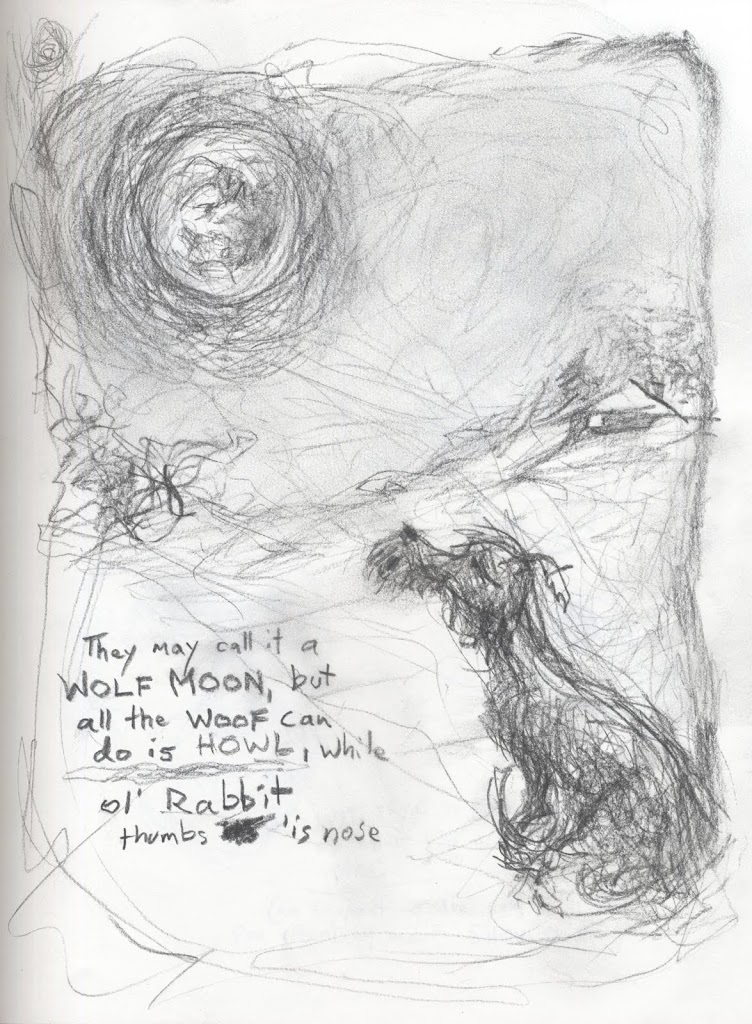 They may call it a
WOLF MOON, but
all the WOOF can
do is HOWL, while
ol' Rabbit
thumbs 'is nose